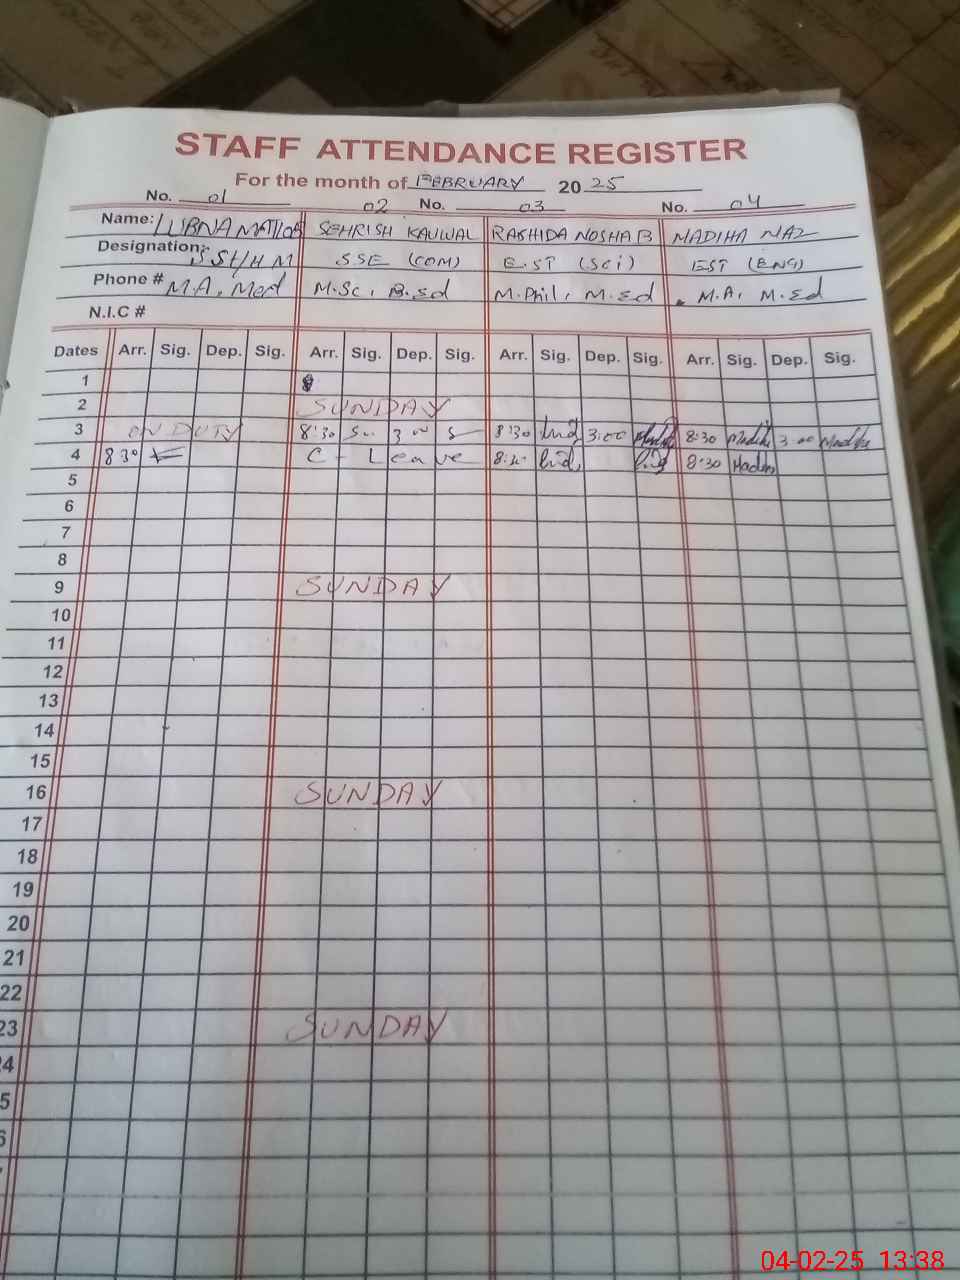 STAFF ATTENDANCE REGISTER
For the month of FEBRUARY 2025
No. 01 02 No. 03 No. 04
Name: LUBNA SEHRISH KAUWAL RASHIDA NOSHAB MADIHA NAZ
Designation: SSE (COM) E.ST (Sci) EST (ENG)
Phone # M.A, Med M.Sc, B.Ed M.Phil, M.Ed M.A, M.Ed
N.I.C #
Dates Arr. Sig. Dep. Sig. Arr. Sig. Dep. Sig. Arr. Sig. Dep. Sig. Arr. Sig. Dep. Sig.
1
2 SUNDAY
3 ON DUTY 8:30 3 00 8:30 3:00 8:30 Madiha 3 00 Madiha
4 8 30 C - Leave 8:30 Madiha
5
6
7
8
9 SUNDAY
10
11
12
13
14
15
16 SUNDAY
17
18
19
20
21
22
23 SUNDAY
4
5
6
04-02-25 13:38